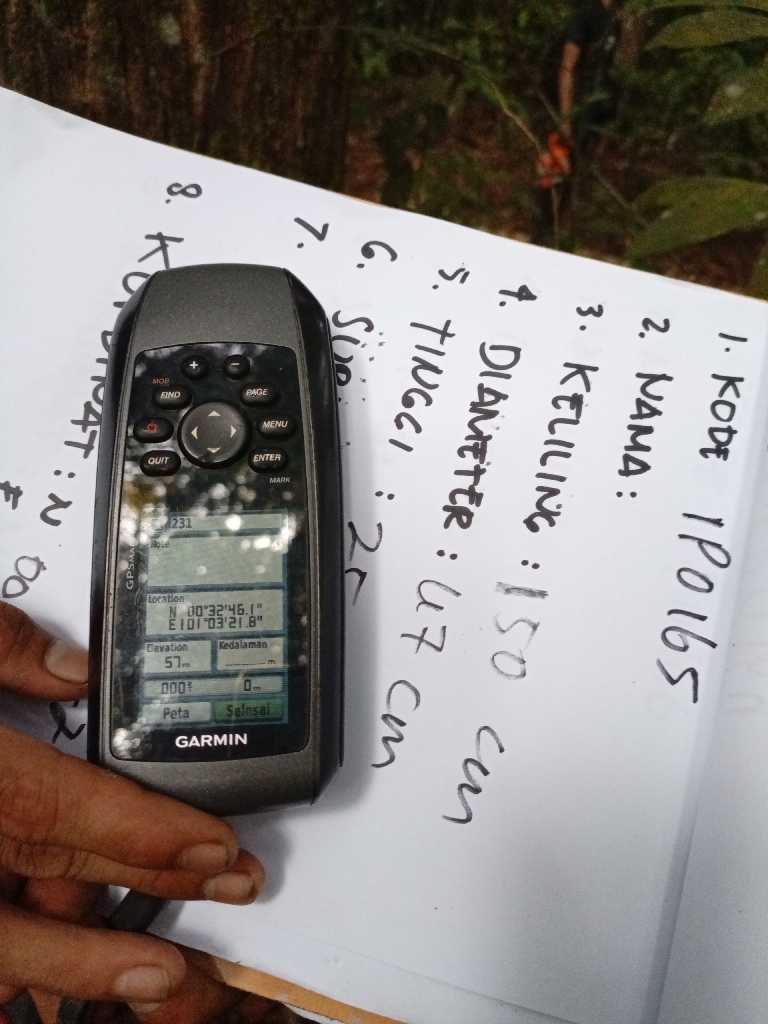 1. KODE IP0165
2. NAMA:
3. KELILING : 150 cm
4. DIAMETER : 47 cm
5. TINGGI : 25
6.
7.
8. KORDINAT : N 00
E
+
-
MOB
FIND
PAGE
MENU
QUIT
ENTER
MARK
231
Note
Location
N 00°32'46.1"
E101°03'21.8"
Elevation
Kedalaman
57m
m
000°
0m
Peta
Selesai
GARMIN